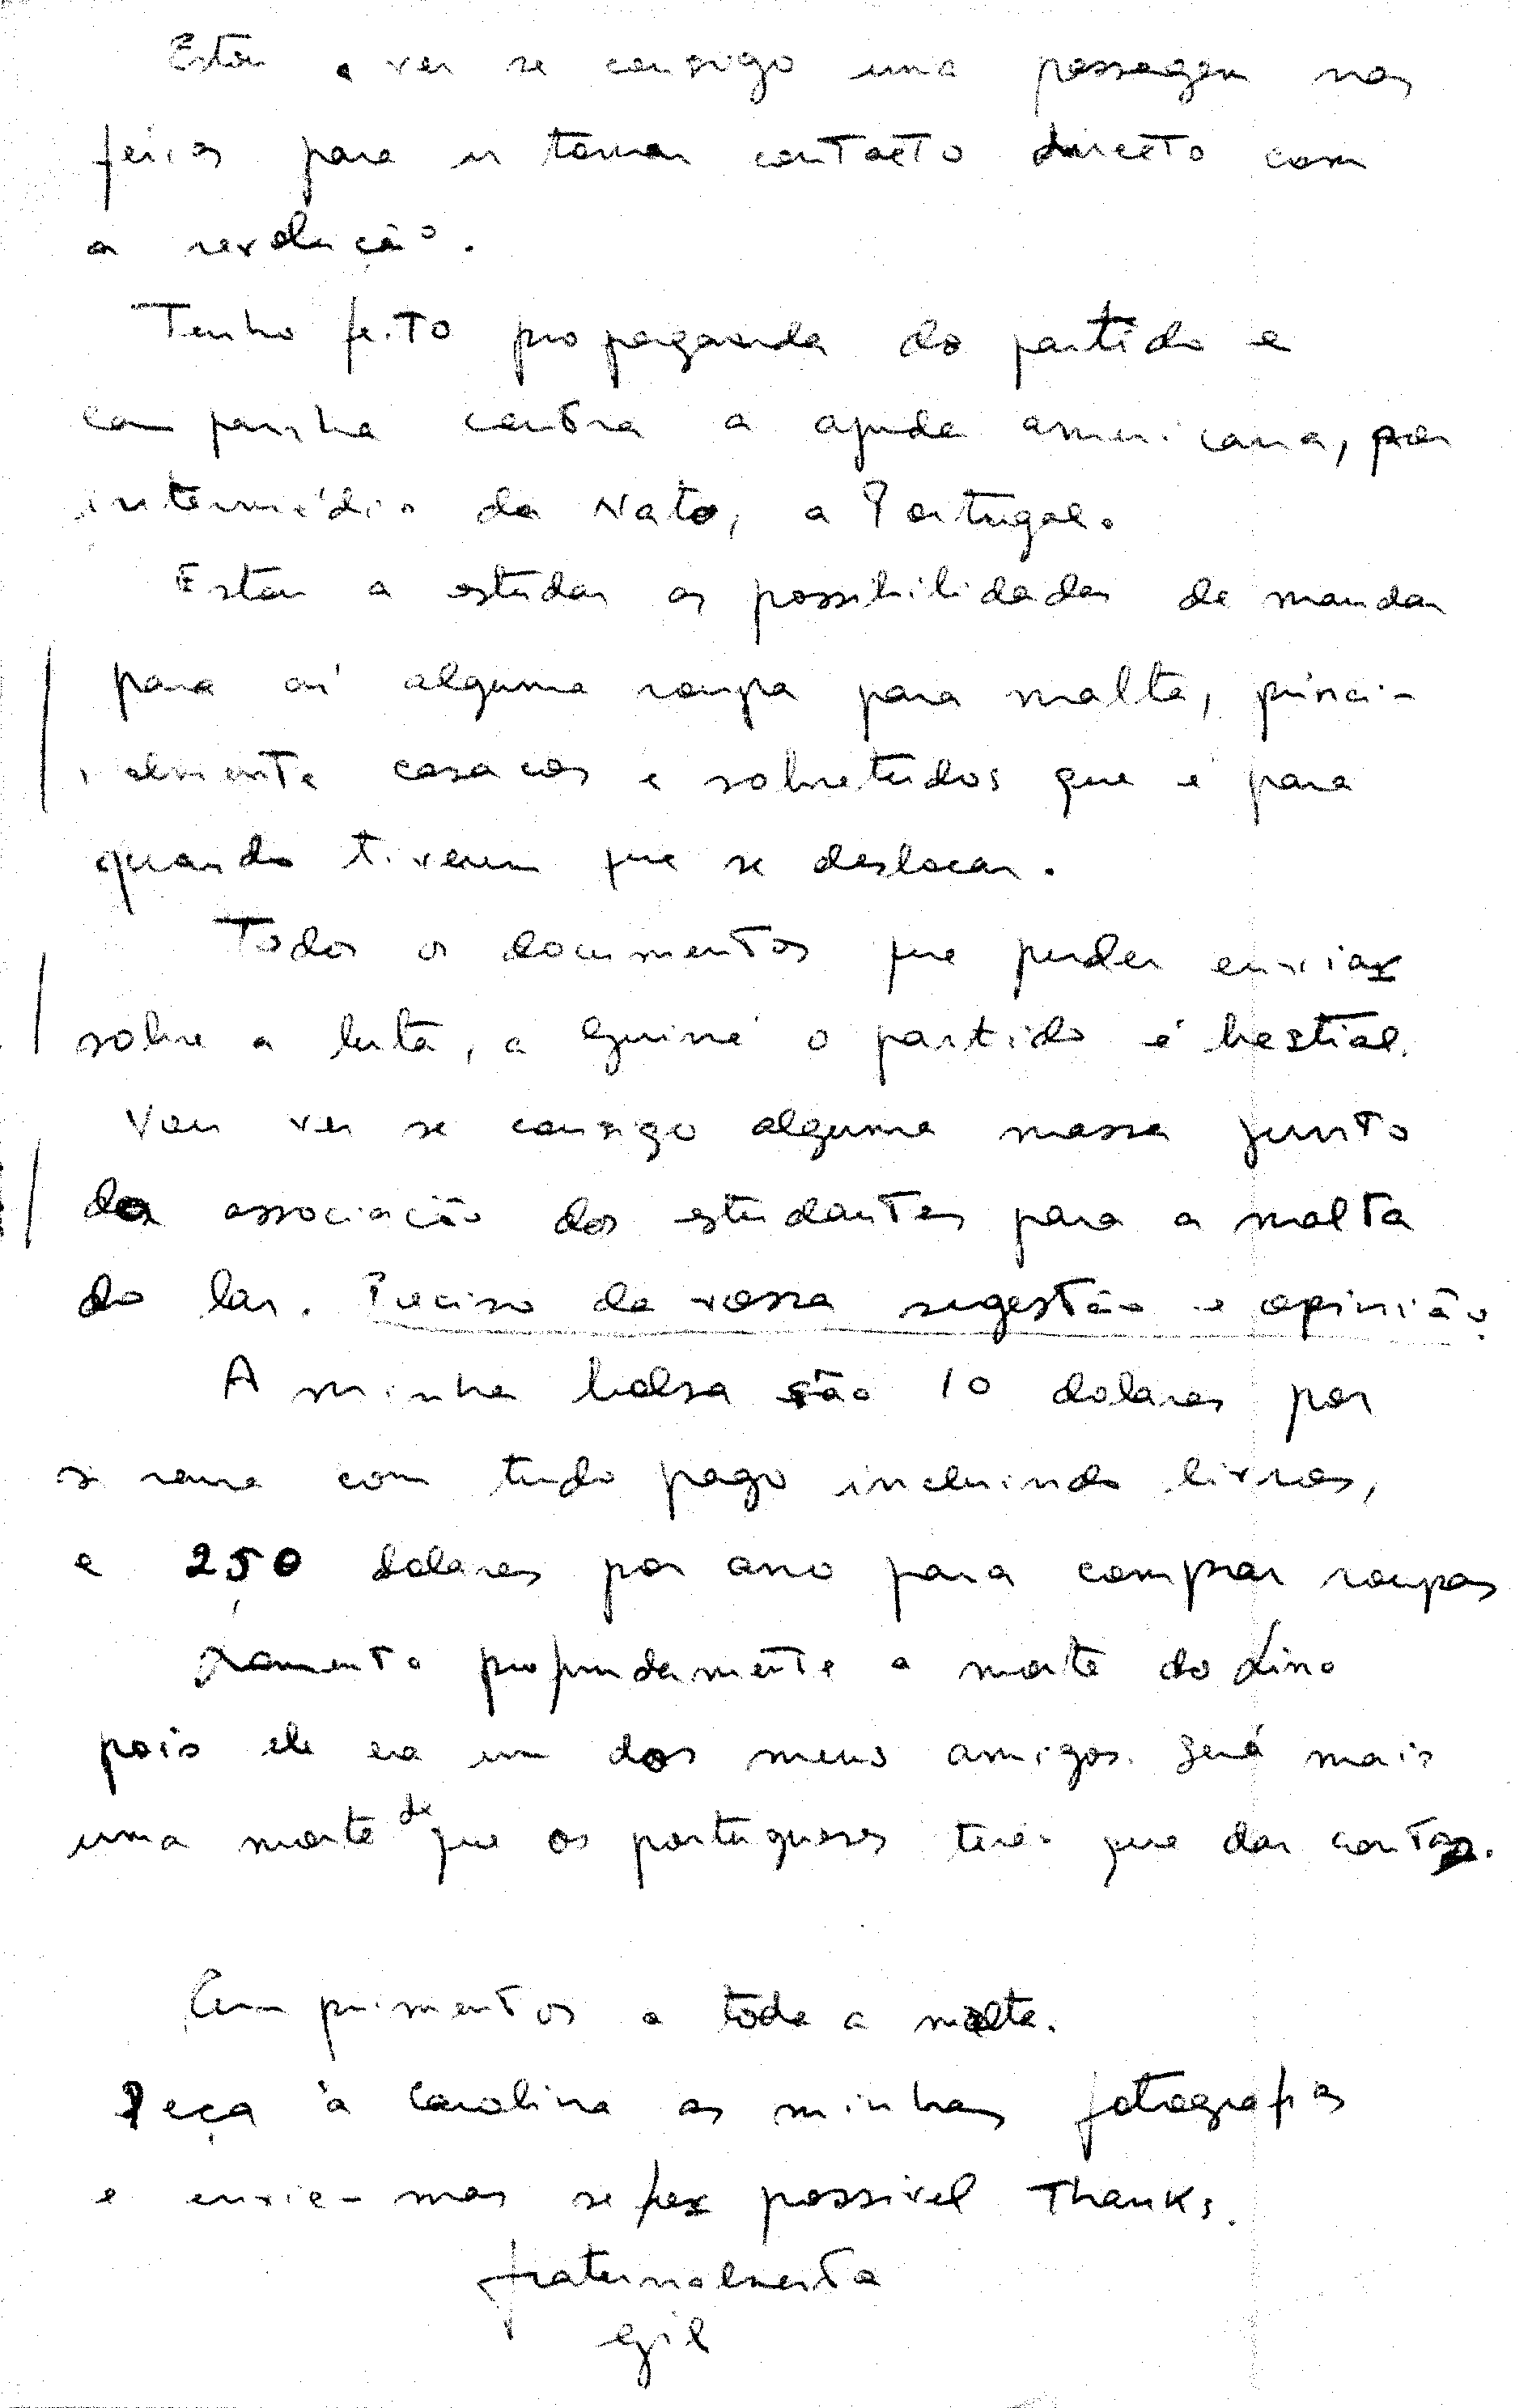 Estou a ver se consigo uma passagem nas
férias para ir tomar contacto directo com
a revolução.
Tenho feito propaganda do partido e
campanha contra a ajuda americana, por
intermédio da Nato, a Portugal.
Estou a estudar as possibilidades de mandar
para aí alguma roupa para malta, princi-
palmente casacos e sobretudos que é para
quando tiverem que se deslocar.
Todos os documentos que puder enviar
sobre a luta, a Guiné o partido é bestial.
Vou ver se consigo alguma massa junto
da associação dos estudantes para a malta
do lar. Preciso da vossa sugestão e opinião.
A minha bolsa são 10 dolares por
semana com tudo pago incluindo livros,
e 250 dolares por ano para comprar roupas
Lamento profundamente a morte do Lino
pois ele era um dos meus amigos. Será mais
uma morte de que os portugueses terão que dar contas.
Cumprimentos a toda a malta.
Peça à Carolina as minhas fotografias
e envie-mas se fôr possivel Thanks.
fraternalmente
Gil